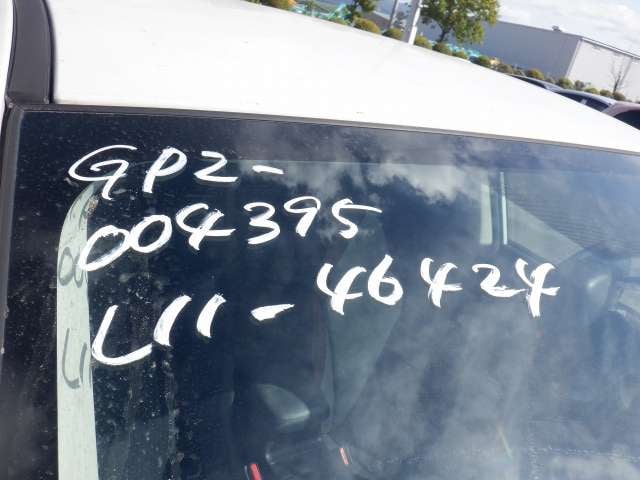 GP2-
004395
L11-46424